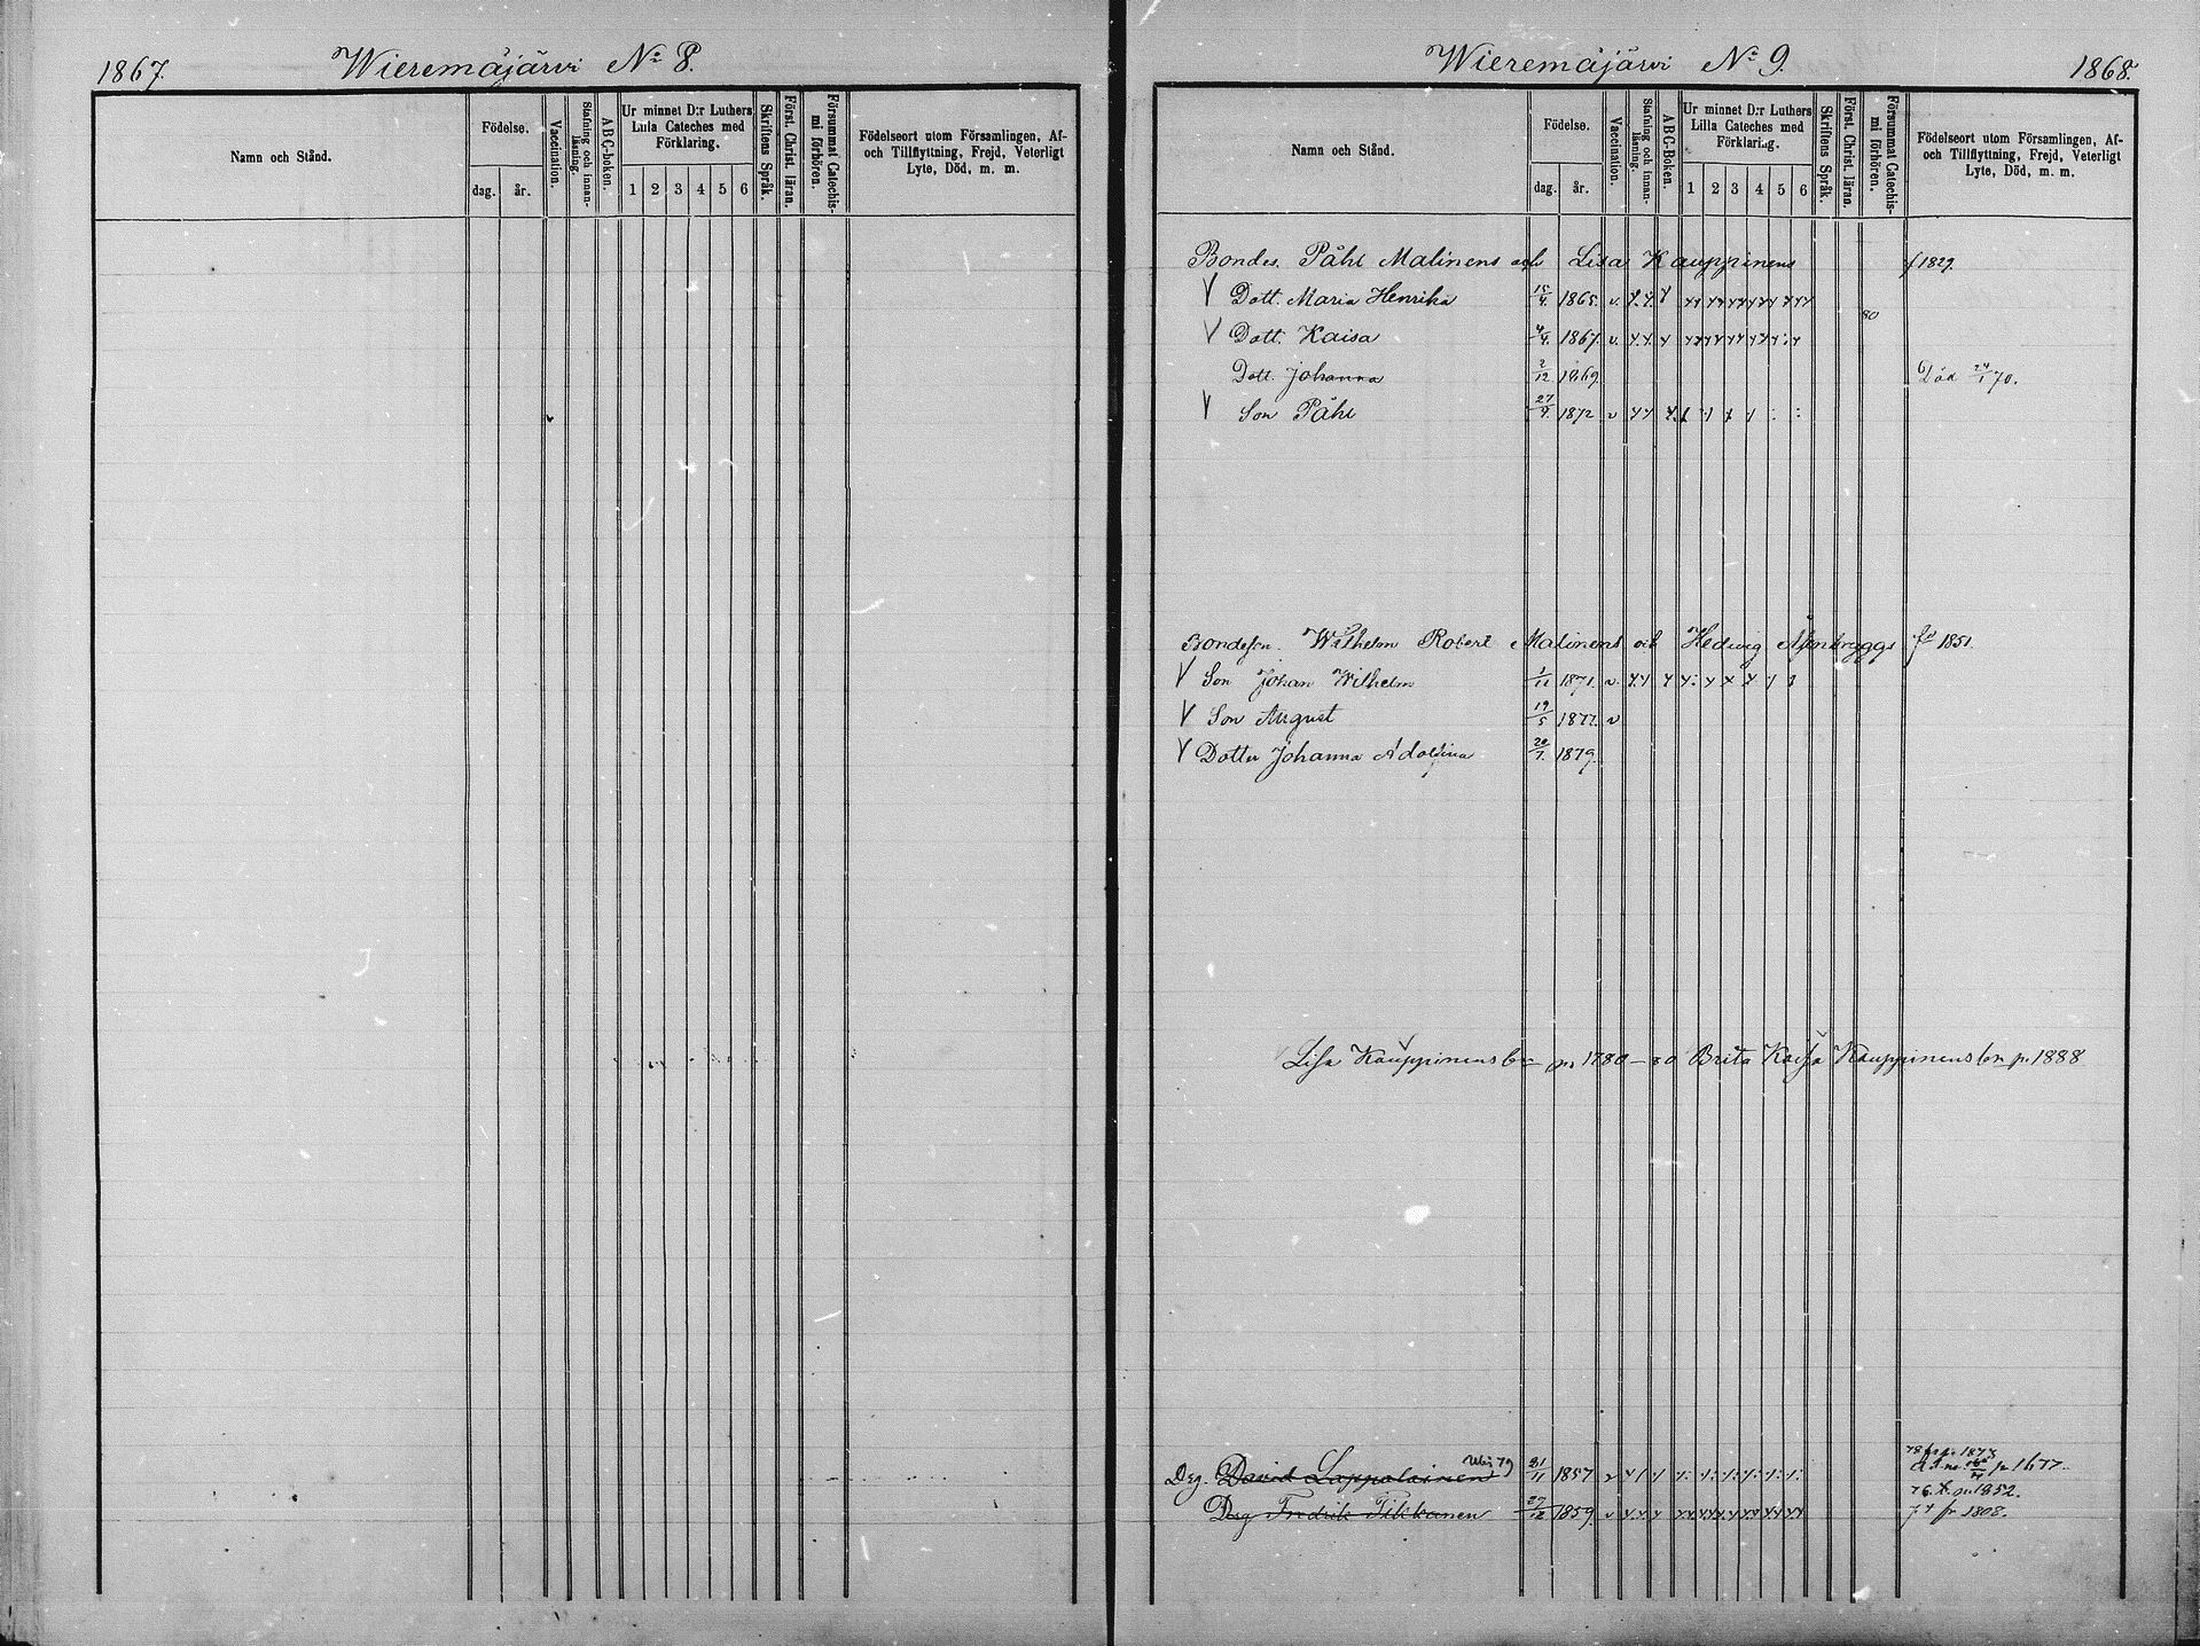 1867.
Wieremäjärvi No 8.
Namn och Stånd.
Födelse.
dag.
år.
Vaccination.
Stafning och innan-
läsning.
ABC-boken.
Ur minnet D:r Luthers
Lilla Cateches med
Förklaring.
1 2 3 4 5 6
Skriftens Språk.
Först. Christ. läran.
Försummat Catechis-
mi förhören.
Födelseort utom Församlingen, Af-
och Tillflyttning, Frejd, Veterligt
Lyte, Död, m. m.
Wieremäjärvi No 9.
1868.
Namn och Stånd.
Födelse.
dag.
år.
Vaccination.
Stafning och innan-
läsning.
ABC-Boken.
Ur minnet D:r Luthers
Lilla Cateches med
Förklaring.
1 2 3 4 5 6
Skriftens Språk.
Först. Christ. läran.
Försummat Catechis-
mi förhören.
Födelseort utom Församlingen, Af-
och Tillflyttning, Frejd, Veterligt
Lyte, Död, m. m.
Bondes. Påhl Malinens och Lisa Kauppinens f 1829.
Dott. Maria Henrika 15/4. 1865. v.
80
Dott. Kaisa 4/4. 1867. v.
Dott. Johanna 2/12 1869. Död 24/1 70.
Son Påhl 27/9. 1872 v
Bondeson. Wilhelm Robert Malinens och Hedwig 1851.
Son Johan Wilhelm 1/11 1871. v.
Son August 19/5 1877. v
Dotter Johanna Adolfina 20/7. 1879.
Lisa Kauppinens 1780 Brita Kaisa Kauppinens p. 1888
Drg. David Lappalainen 79 21/11 1857 v 1677
76. 1852.
Drg Fredrik Tikkanen 27/12 1859. v 77 fr 1808.